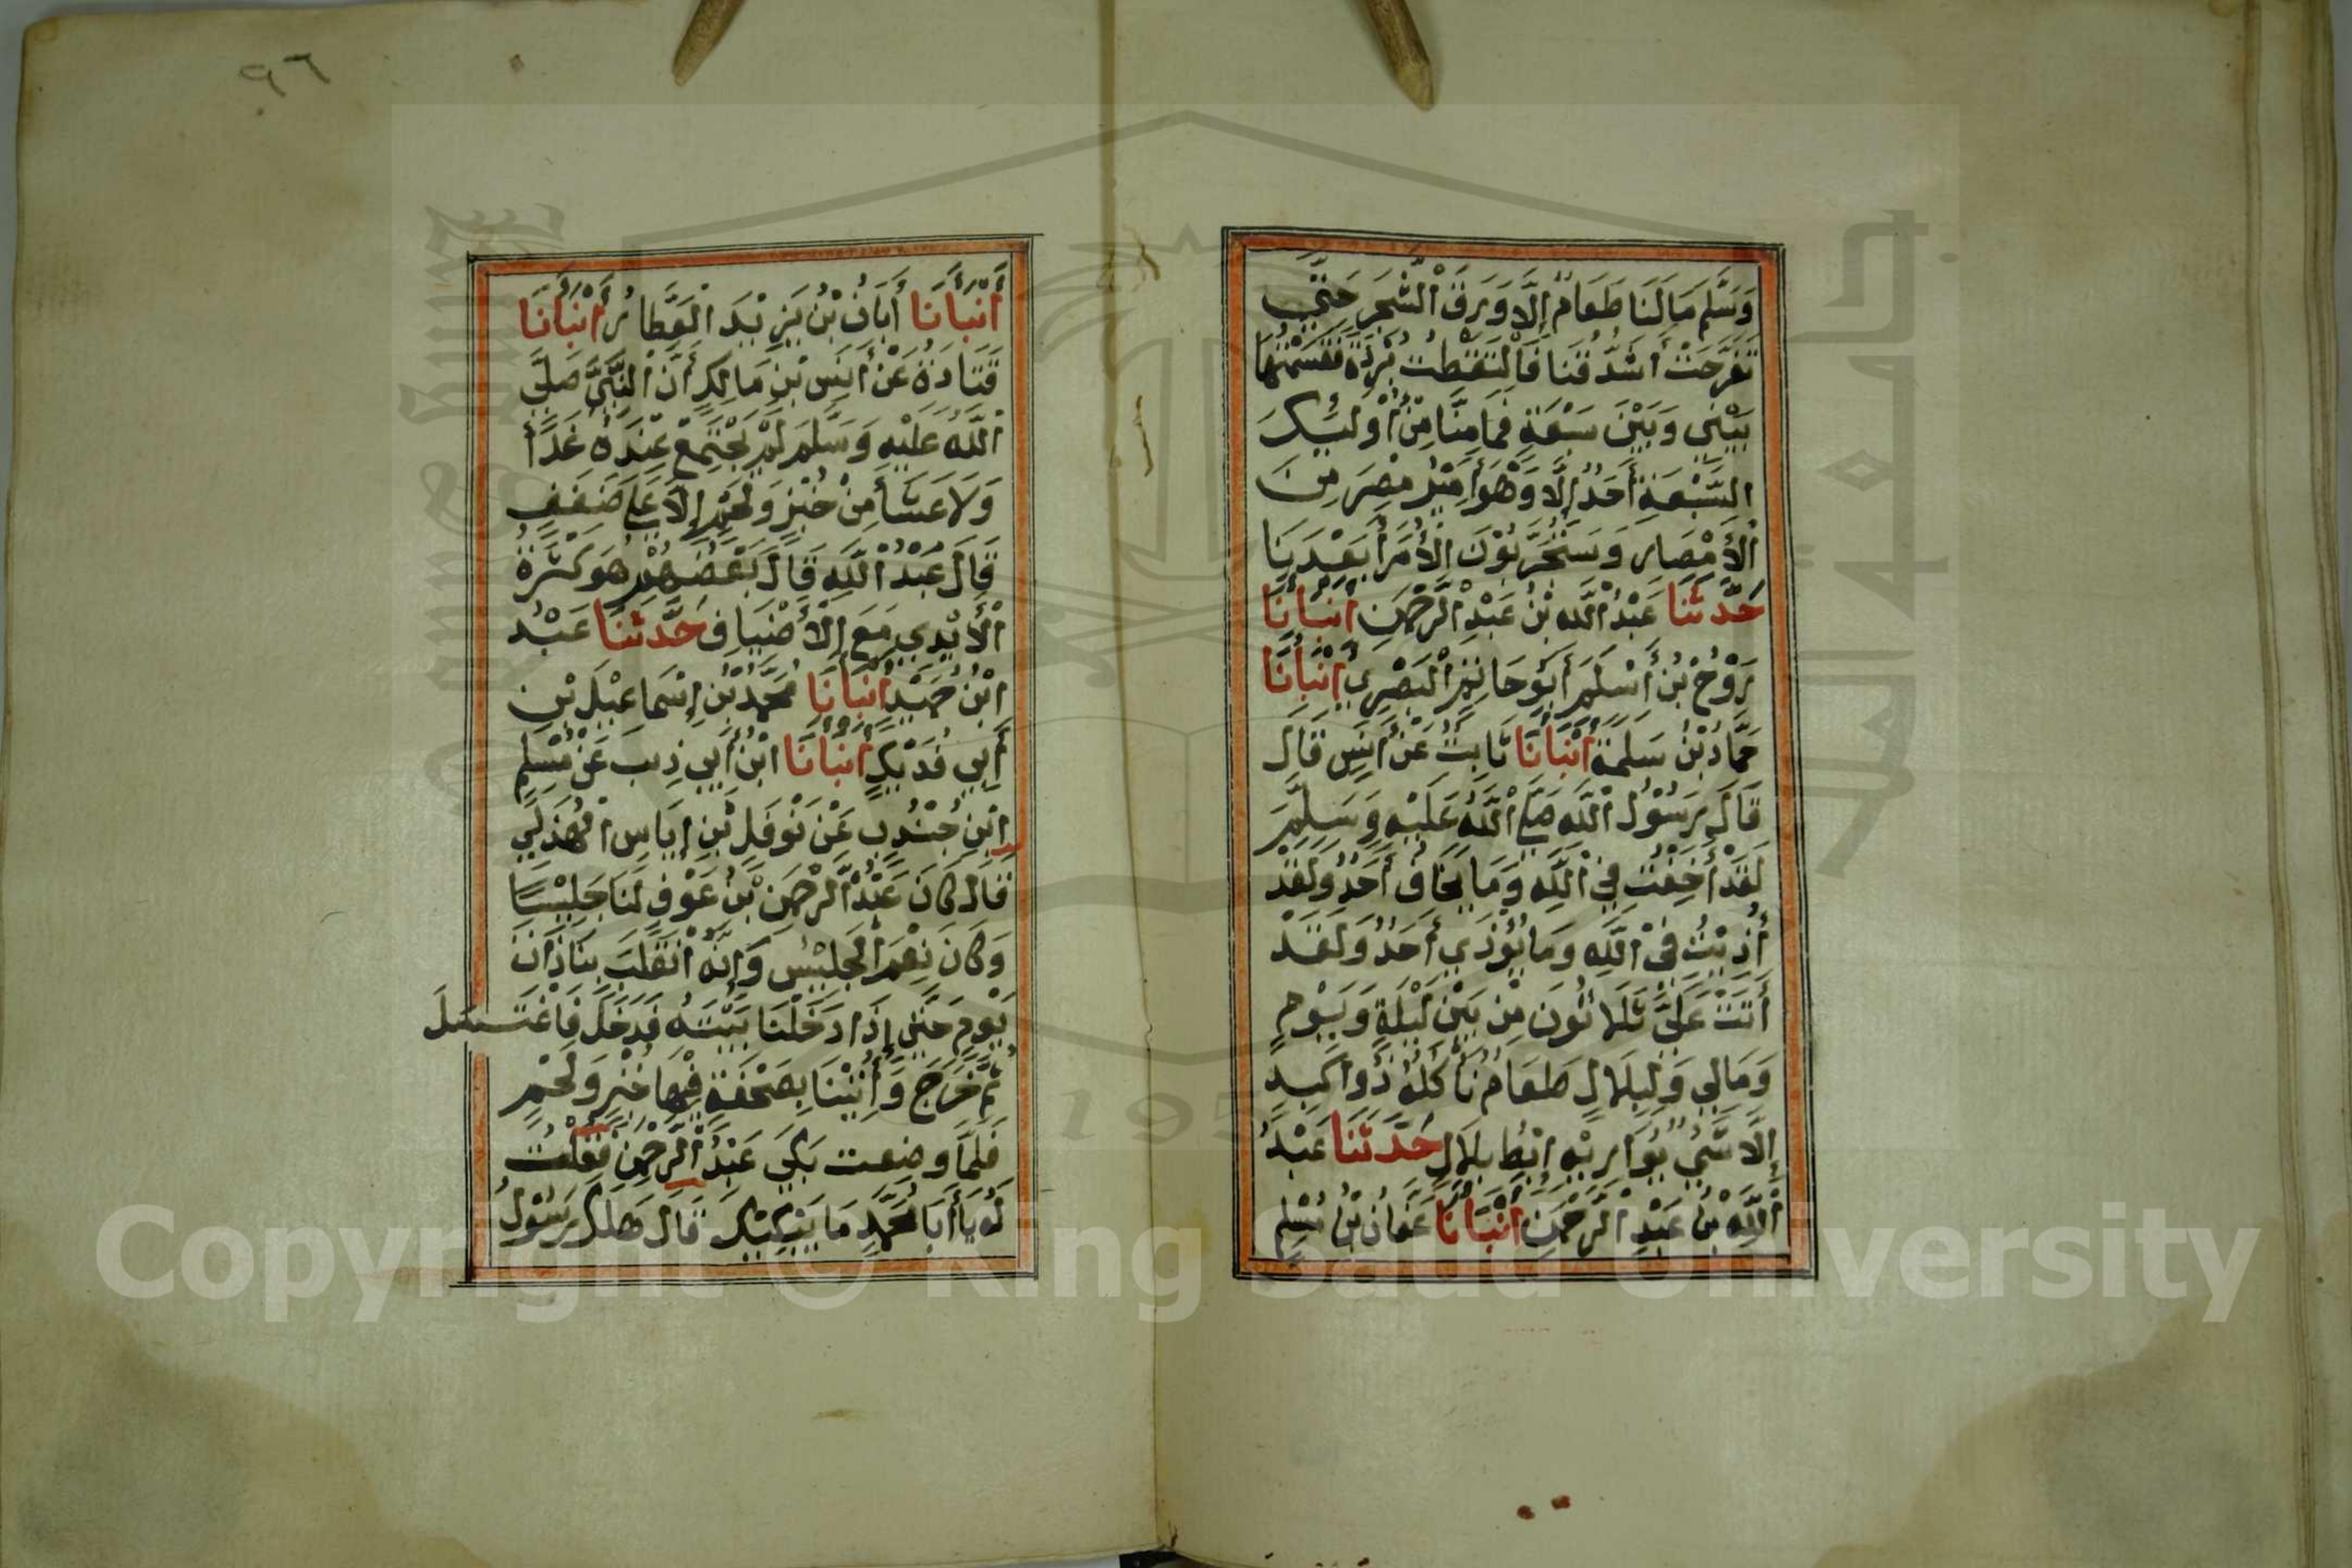 وَسَلَّمَ مَا لَنَا طَعَامٌ إِلَّا وَرَقَ الْشَّجَرِ حَتَّي
تَقَرَّحَتْ أَشْدُقُنَا فَالْتَقَطْتُ بُرْدَةً فَقَسَمْتُهَا
بَيْنِي وَبَيْنَ سَبْعَةٍ فَمَا مِنَّا مِنْ أُوْلَئِيكَ
السَّبْعَةِ أَحَدٌ إِلَّا وَهُوَ أَمِيْرُ مِصْرَ مِنَ
الْأَمْصَارِ وَسَتُجَرِّبُوْنَ الْأُمَرَأَ بَعْدَ يَنَا
حَدَّثَنَا عَبْدُ الْلَّهِ بْنُ عَبْدِ الْرَّحْمَنِ أَنْبَأَنَا
رَوْحُ بْنُ أَسْلَمَ أَبُوْ حَاتِمِ الْبَصْرِي أَنْبَأَنَا
حَمَّادُ بْنُ سَلَمَةَ أَنْبَأَنَا ثَابِتُ عَنْ أَنَسٍ قَالَ
قَالَ رَسُوْلُ الْلَّهِ صَلَّى الْلَّهُ عَلَيْهِ وَسَلَّمَ
لَقَدْ أُخِفْتُ فِيْ الْلَّهِ وَمَا يُخَافُ أَحَدٌ وَلَقَدْ
أُذِيْتُ فِيْ الْلَّهِ وَمَا يُؤْذَي أَحَدٌ وَلَقَدْ
أَتَتْ عَلَيَّ ثَلَاثُونَ مِنْ بَيْنِ لَيْلَةٍ وَيَوْمٍ
وَمَا لِي وَلِبِلَالٍ طَعَامٌ نَأْكُلُهُ ذُوا كَبِدٍ
إِلَّا شَيْءٌ يُوَارِيْهِ إِبْطُ بِلَالٍ حَدَّثَنَا عَبْدُ
الْلَّهِ بْنُ عَبْدِ الْرَّحْمَنِ أَنْبَأَنَا عَفَانُ بْنُ مُسْلِمٍ
٩٦
أَنْبَأَنَا أَبَانُ بْنُ يَزِيْدَ الْعَطَّارُ أَنْبَأَنَا
قَتَادَةُ عَنْ أَنَسِ بْنِ مَالِكٍ أَنَّ الْنَّبِيَّ صَلَّى
الْلَّهُ عَلَيْهِ وَسَلَّمَ لَمْ يَجْتَمِعْ عِنْدَهُ غَدَأٌ
وَلَا عَشَأٌ مِنْ خُبْزٍ وَلَحْمٍ إِلَّا عَلَى ضَفَفٍ
قَالَ عَبْدُ الْلَّهِ قَالَ بَعْضُهُمْ هُوَ كَثْرَةُ
الْأَيْدِي مَعَ الْأَضْيَافِ حَدَّثَنَا عَبْدُ
ابْنُ حُمَيْدٍ أَنْبَأَنَا مُحَمَّدُ بْنُ إِسْمَاعِيْلَ بْنِ
أَبِي فُدَيْكٍ أَنْبَأَنَا ابْنُ أَبِي ذِيبٍ عَنْ مُسْلِمِ
ابْنِ جُنْدُبٍ عَنْ نَوْفَلِ بْنِ إِيَاسٍ الْهُذَلِي
قَالَ كَانَ عَبْدُ الْرَّحْمَنِ بْنُ عَوْفٍ لَنَا جَلِيْسًا
وَكَانَ نِعْمَ الْجَلِيْسُ وَإِنَّهُ انْقَلَبَ بِنَا ذَاتَ
يَوْمٍ حَتَّى إِذَا دَخَلْنَا بَيْتَهُ فَدَخَلَ فَاغْتَسَلَ
ثُمَّ خَرَجَ وَأُتِيْنَا بِصَحْفَةٍ فِيْهَا خُبْزٌ وَلَحْمٍ
فَلَمَّا وضِعت بَكَى عَبْدُ الْرَّحْمَنِ فَقُلْتُ
لَهُ يَا أَبَا مُحَمَّدٍ مَا يُبْكِيْكَ قَالَ هَلَكَ رَسُوْلُ